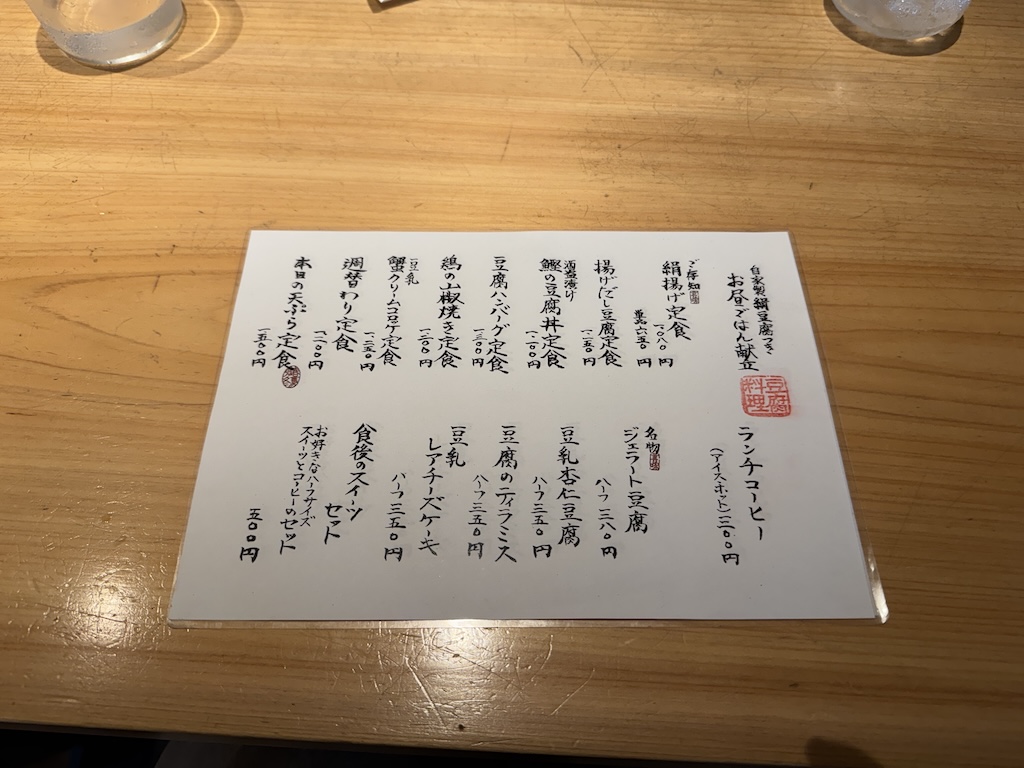 自家製絹豆腐つき
お昼ごはん献立
豆腐料理
ご存知
絹揚げ定食
一〇八〇円
単品六五〇円
揚げだし豆腐定食
一一五〇円
鰹の豆腐丼定食
一一〇〇円
豆腐ハンバーグ定食
鶏の山椒焼き定食
一二〇〇円
豆乳
蟹クリームコロッケ定食
一二五〇円
週替わり定食
一二〇〇円
本日の天ぷら定食
一五〇〇円
ランチコーヒー
(アイス・ホット)三〇〇円
名物
ジェラート豆腐
ハーフ三八〇円
豆乳杏仁豆腐
ハーフ三五〇円
豆腐のティラミス
ハーフ三五〇円
豆乳
レアチーズケーキ
ハーフ三五〇円
食後のスイーツ
セット
お好きなハーフサイズ
スイーツとコーヒーのセット
五〇〇円